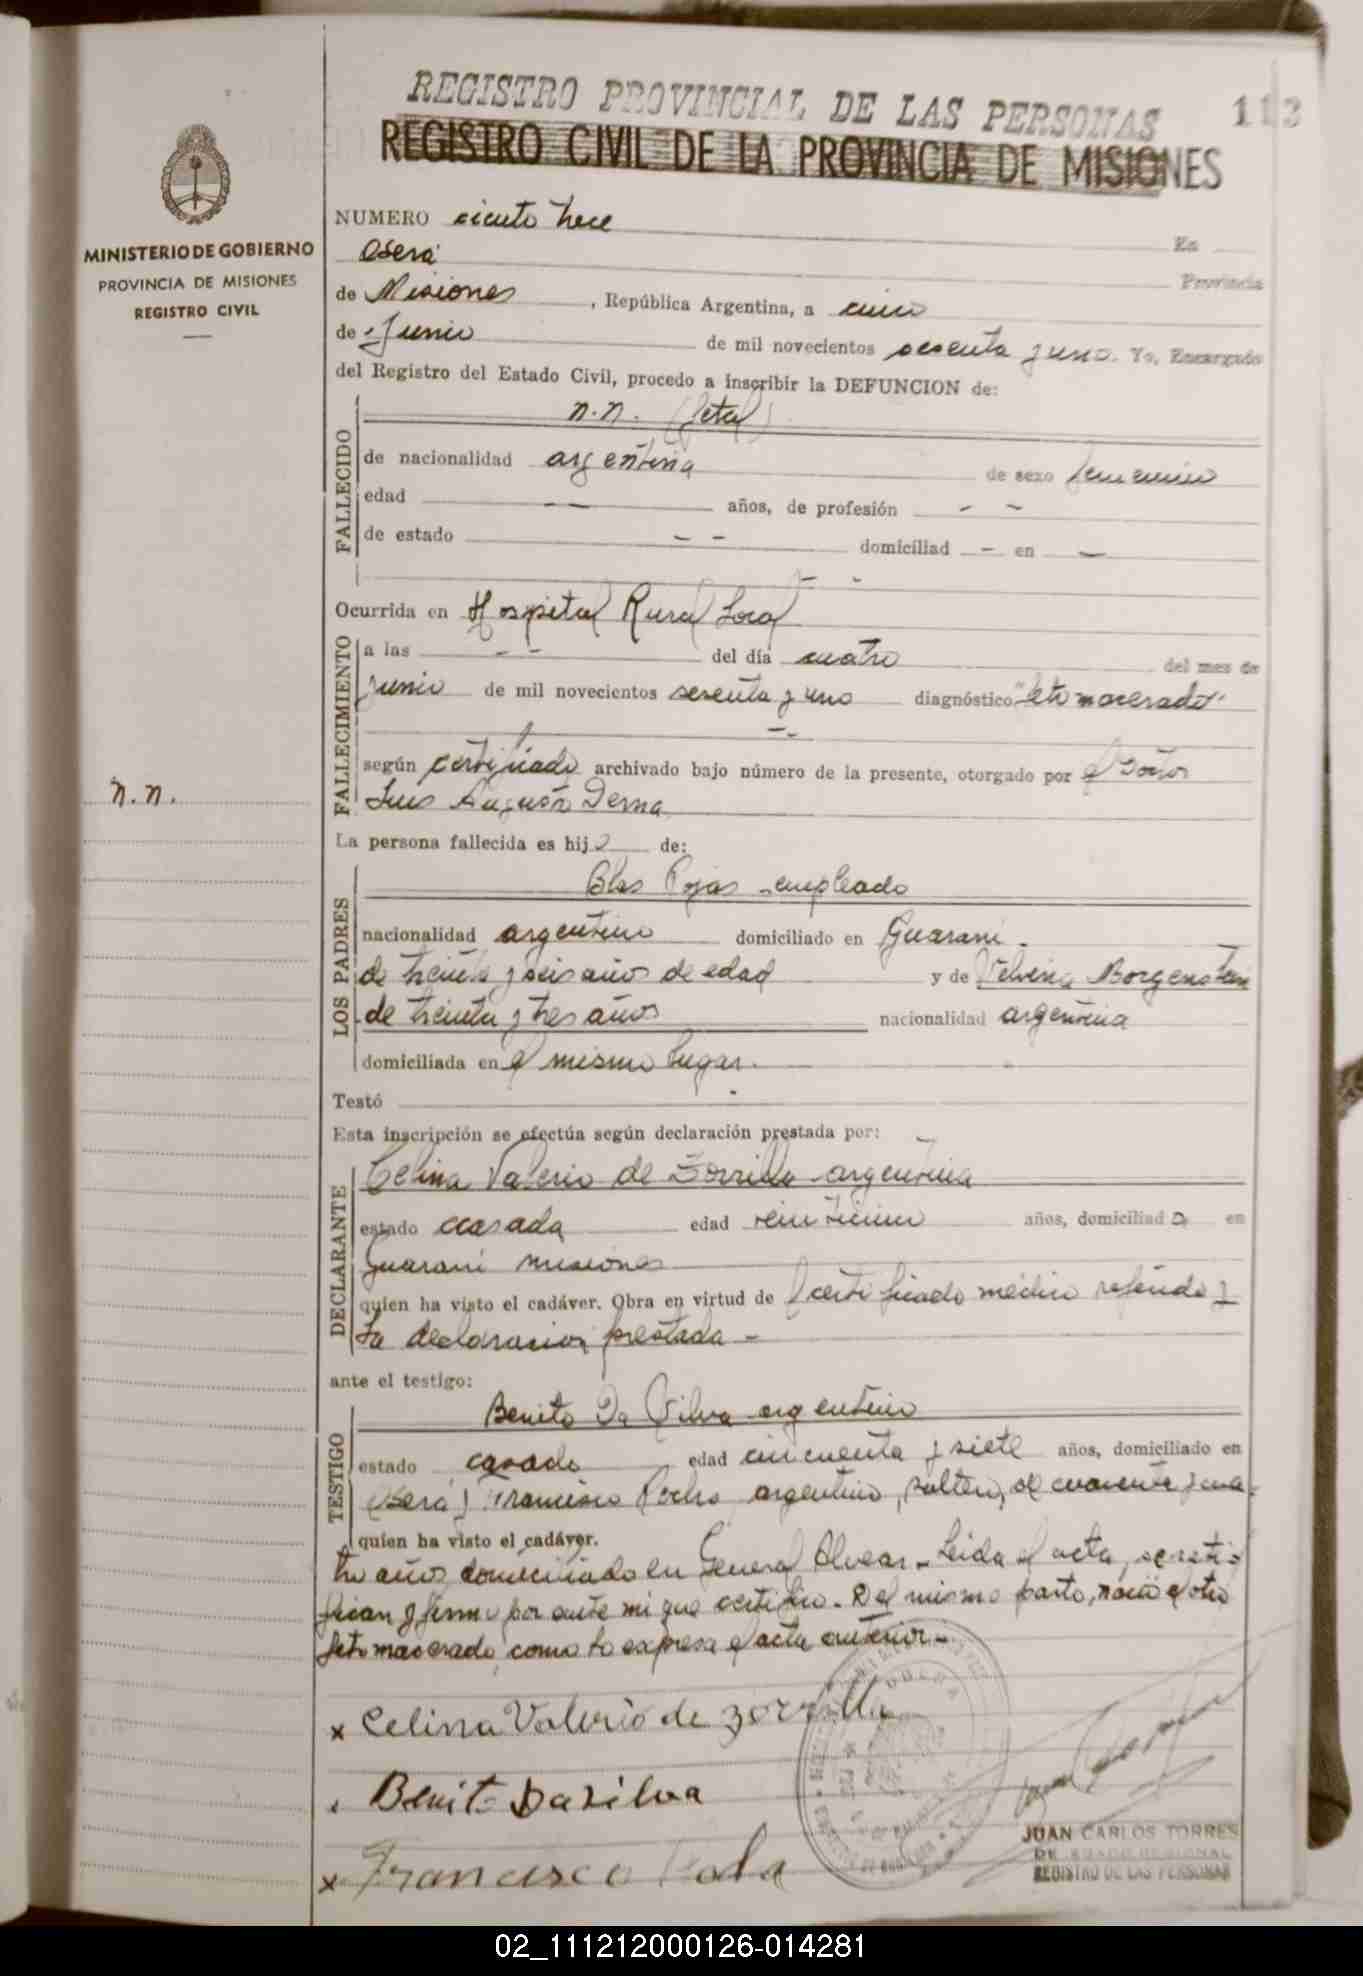 REGISTRO PROVINCIAL DE LAS PERSONAS
113
REGISTRO CIVIL DE LA PROVINCIA DE MISIONES
MINISTERIO DE GOBIERNO
PROVINCIA DE MISIONES
REGISTRO CIVIL
NUMERO ciento trece En
Oberá Provincia
de Misiones, República Argentina, a cinco
de Junio de mil novecientos sesenta y uno. Yo, Encargado
del Registro del Estado Civil, procedo a inscribir la DEFUNCION de:
n.n. (fetal)
FALLECIDO
de nacionalidad argentina de sexo femenino
edad -- años, de profesión - -
de estado - - domiciliad - en -
Ocurrida en Hospital Rural Local
FALLECIMIENTO
a las -- del día cuatro del mes de
junio de mil novecientos sesenta y uno diagnóstico "feto macerado"
según certificado archivado bajo número de la presente, otorgado por el Doctor
Luis Augusto Derna
n.n.
La persona fallecida es hija de:
LOS PADRES
Blas Rojas empleado
nacionalidad argentino domiciliado en Guaraní.
de treinta y seis años de edad y de Velvina Borgenstan
de treinta y tres años nacionalidad argentina
domiciliada en el mismo lugar.
Testó
Esta inscripción se efectúa según declaración prestada por:
DECLARANTE
Celina Valerio de Zorrilla argentina
estado casada edad años, domiciliada en
Guaraní misiones
quien ha visto el cadáver. Obra en virtud de certificado médico referido y
la declaración prestada -
ante el testigo:
TESTIGO
Benito Da Silva argentino
estado casado edad cincuenta y siete años, domiciliado en
Oberá y Francisco argentino, soltero, de cuarenta y cua-
quien ha visto el cadáver.
tro años domiciliado en General Alvear. Leida el acta, se rati-
fican y firman por ante mi que certifico. Del mismo parto, nació el otro
feto macerado, como lo expresa el acta anterior.-
x Celina Valerio de Zorrilla
Benito Da Silva
x Francisco
JUAN CARLOS TORRES
REGISTRO DE LAS PERSONAS
02_111212000126-014281